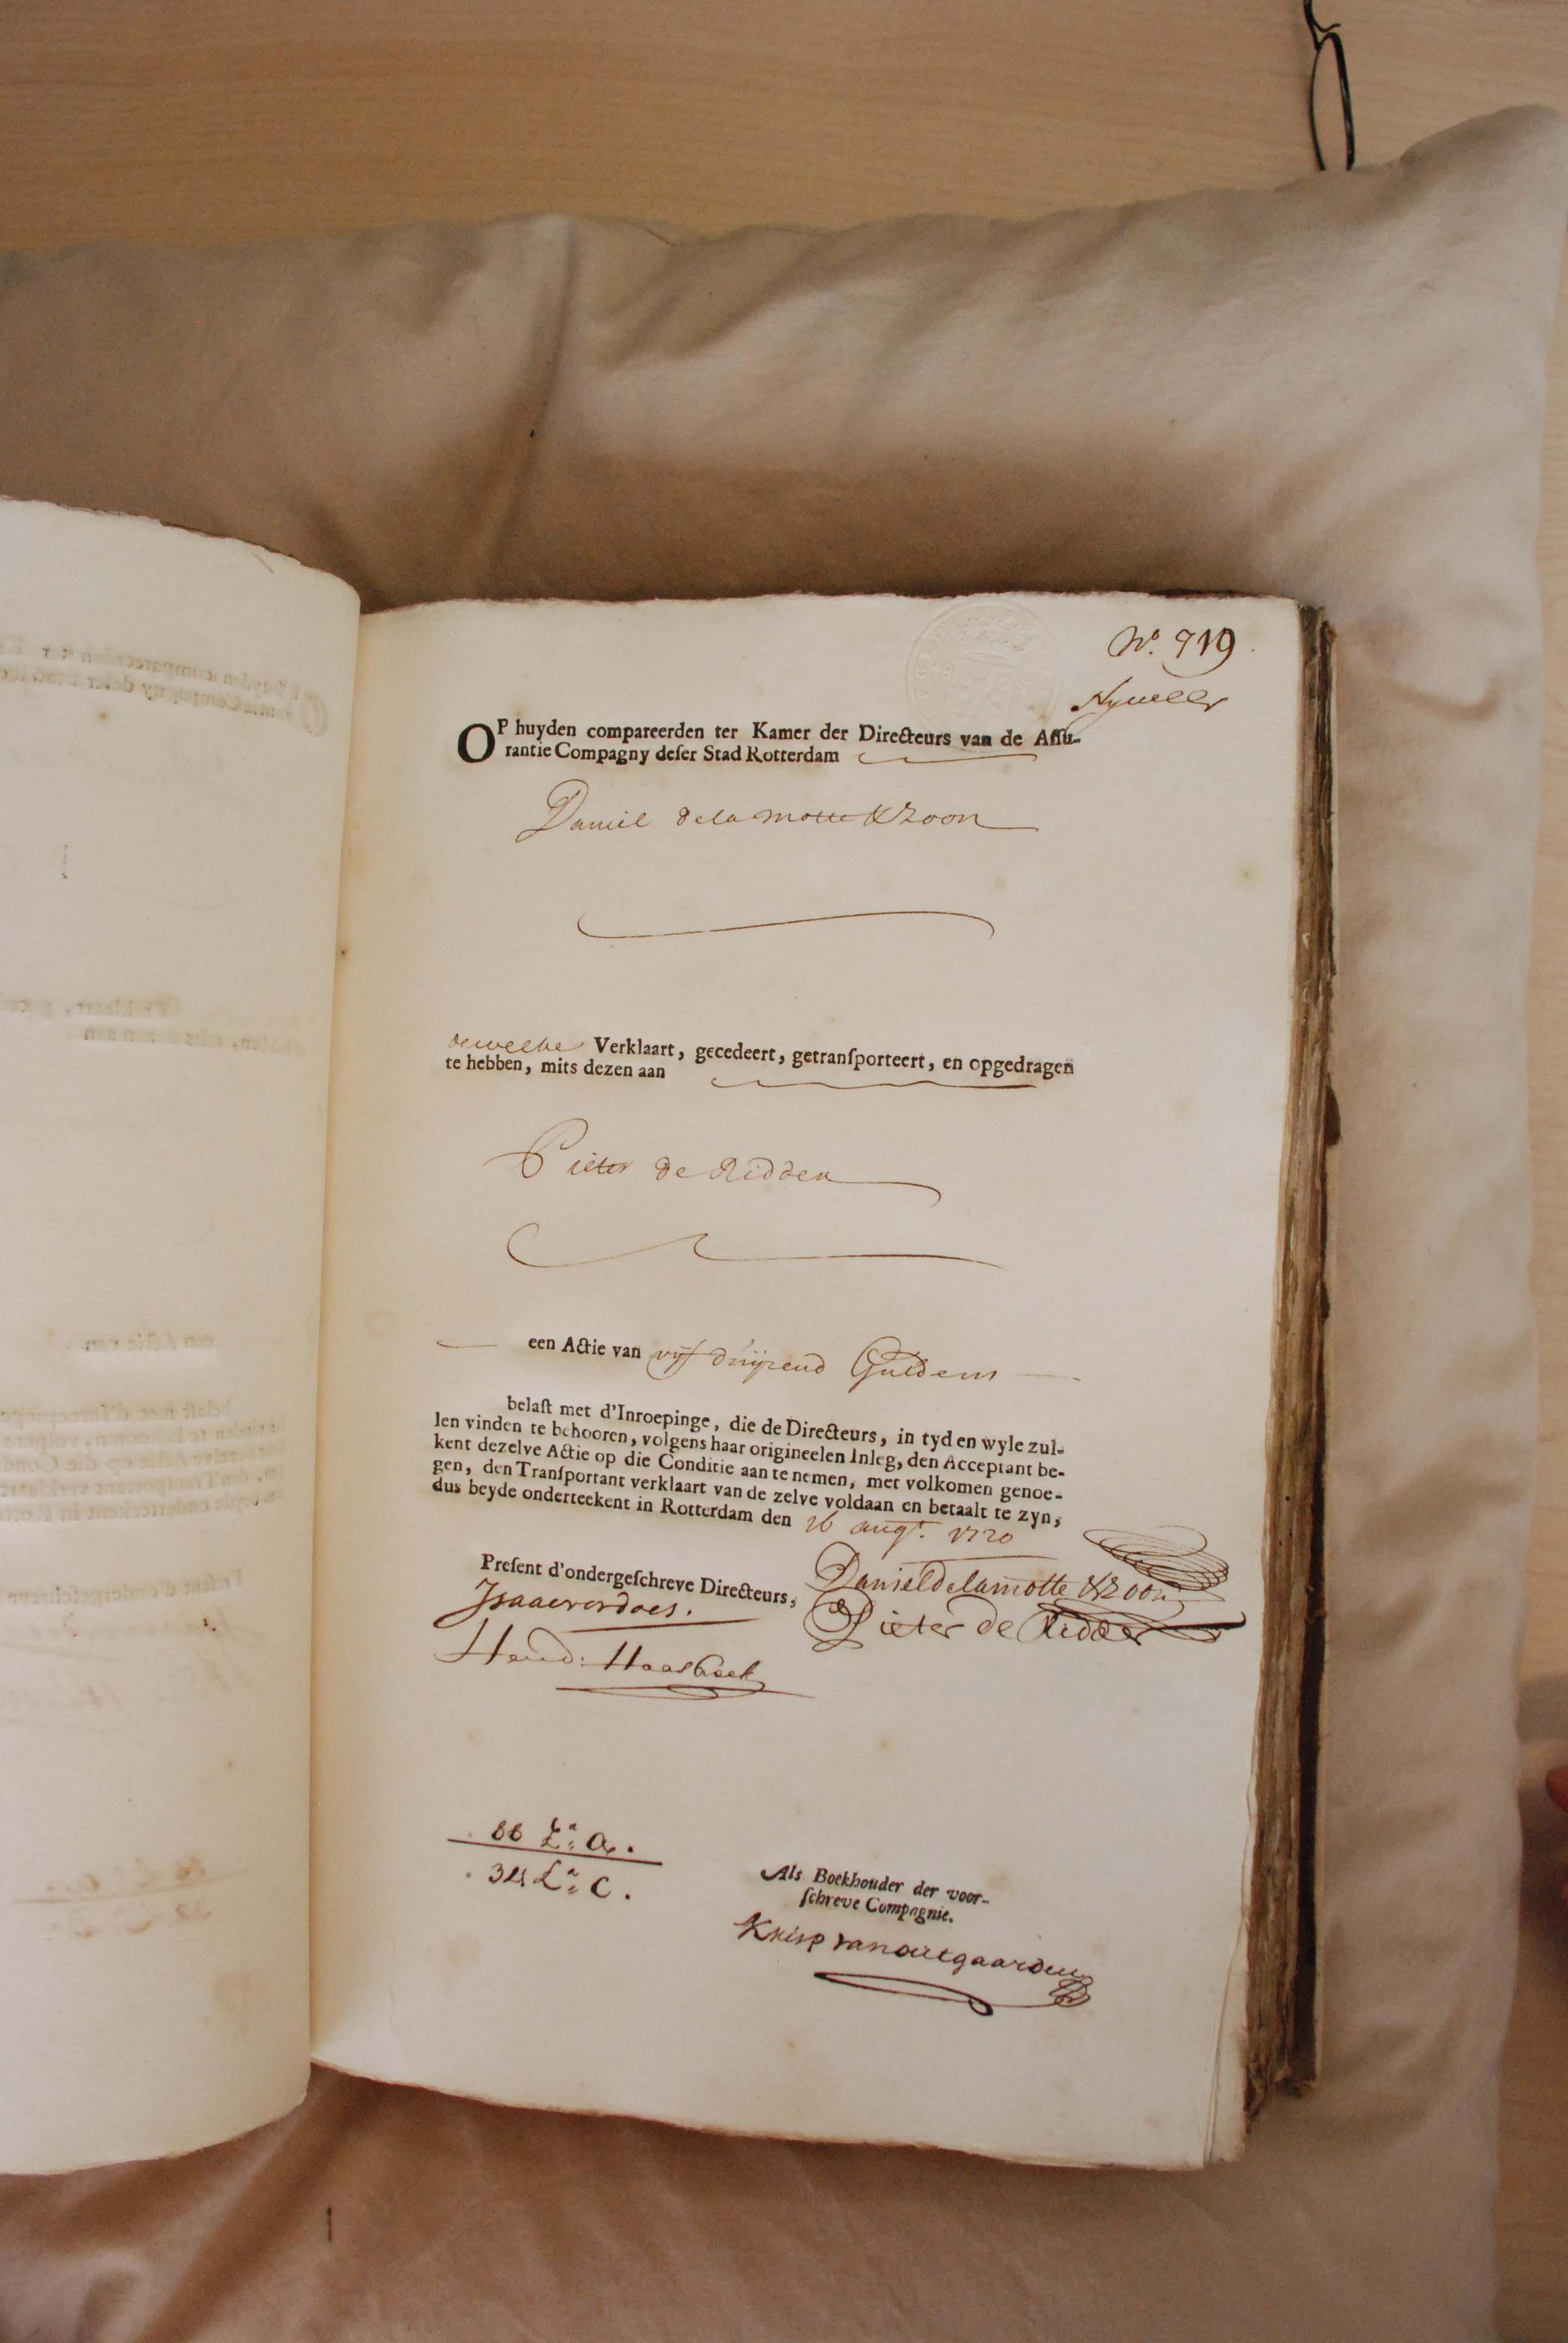 N.º 919
OP huyden compareerden ter Kamer der Directeurs van de Aſſu-
rantie Compagny deſer Stad Rotterdam
Daniel dela motte &zoon
dewelke Verklaart, gecedeert, getranſporteert, en opgedragen
te hebben, mits dezen aan
Pieter de Ridder
een Actie van vijf duijzend Guldens
belaſt met d'Inroepinge, die de Directeurs, in tyd en wyle zul-
len vinden te behooren, volgens haar origineelen Inleg, den Acceptant be-
kent dezelve Actie op die Conditie aan te nemen, met volkomen genoe-
gen, den Tranſportant verklaart van de zelve voldaan en betaalt te zyn,
dus beyde onderteekent in Rotterdam den 16 augt. 1720
Preſent d'ondergeſchreve Directeurs,
Danieldelamotte &zoon
Isaacverdoes.
Pieter de Ridder
Hend: Haasbeek
66 Lª: A.
Lª: C.
Als Boekhouder der voor-
ſchreve Compagnie.
Krisp van outgaarden